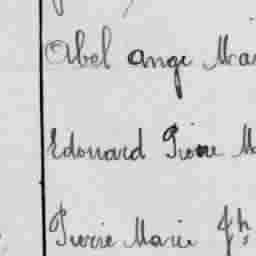 Abel ange Ma
Edouard Pierre M
Pierre Marie Jh